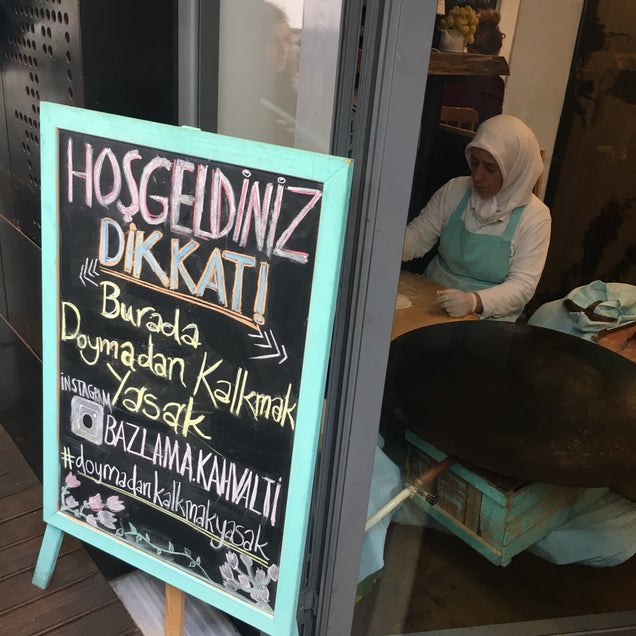 HOŞGELDİNİZ
DİKKAT!
Burada
Doymadan Kalkmak
Yasak
İNSTAGRAM
BAZLAMA.KAHVALTI
#doymadankalkmakyasak